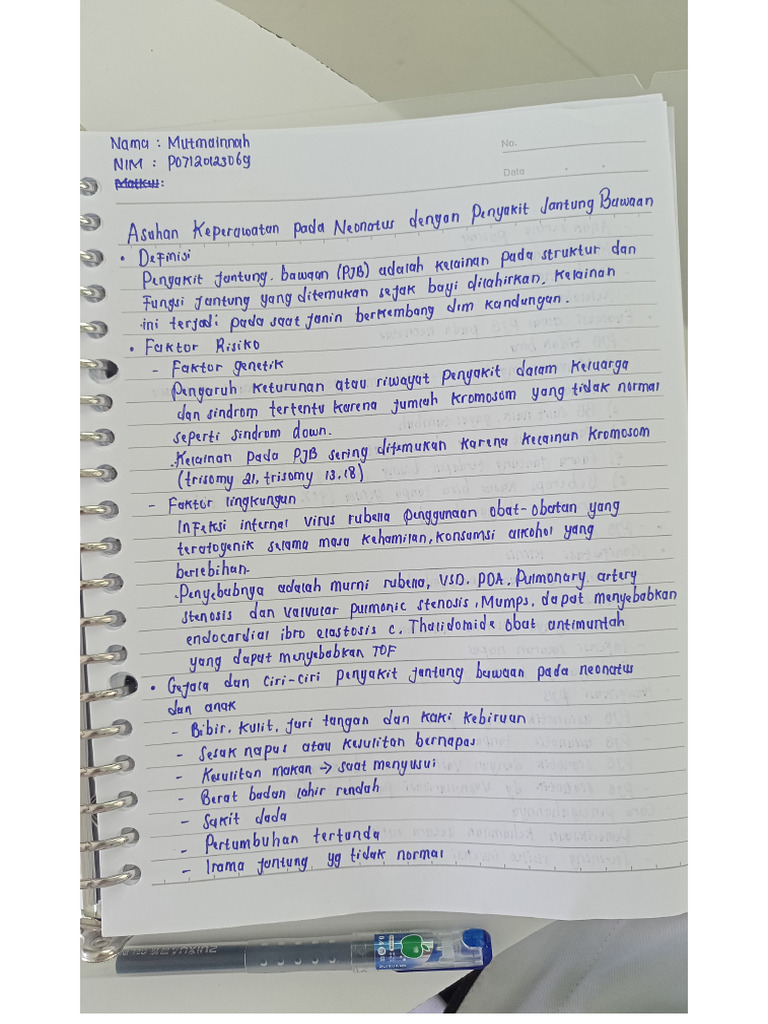 Nama : Mutmainnah
NIM : P07120123069
Matkul:
No.
Date
Asuhan Keperawatan pada Neonatus dengan Penyakit Jantung Bawaan
• Definisi
Penyakit jantung bawaan (PJB) adalah kelainan pada struktur dan
Fungsi jantung yang ditemukan sejak bayi dilahirkan, kelainan
ini terjadi pada saat janin berkembang dlm kandungan.
• Faktor Risiko
- Faktor genetik
Pengaruh keturunan atau riwayat penyakit dalam keluarga
dan sindrom tertentu karena jumlah kromosom yang tidak normal
seperti sindrom down.
.Kelainan pada PJB sering ditemukan karena kelainan kromosom
(trisomy 21, trisomy 13,18)
- Faktor lingkungan
Infeksi internal virus rubella penggunaan obat-obatan yang
teratogenik selama masa kehamilan, konsumsi alkohol yang
berlebihan.
.Penyebabnya adalah murni rubella, VSD. PDA, Pulmonary artery
stenosis dan valvular pulmonic stenosis, Mumps, dapat menyebabkan
endocardial ibro elastosis c. Thalidomide obat antimuntah
yang dapat menyebabkan TOF
• Gejala dan ciri-ciri penyakit jantung bawaan pada neonatus
dan anak
- Bibir, kulit, jari tangan dan kaki kebiruan
- Sesak napas atau kesulitan bernapas
- Kesulitan makan → saat menyusui
- Berat badan lahir rendah
- Sakit dada
- Pertumbuhan tertunda
- Irama jantung yg tidak normal